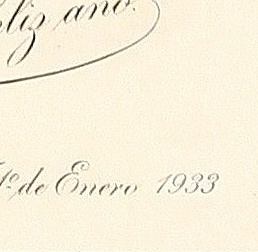 eliz año.
1º de Enero 1933